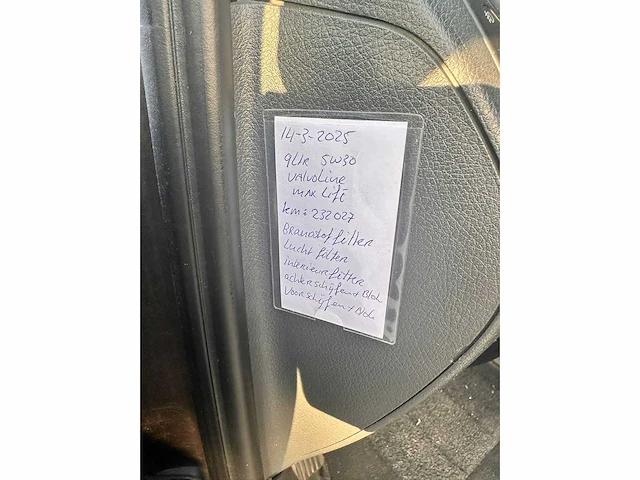 14-3-2025
9Ltr 5W30
Valvoline
max Lift
km: 232027
Brandstof filter
Lucht filter
interieur filter
achter schijfen + Blok
Voor schijfen + Blok